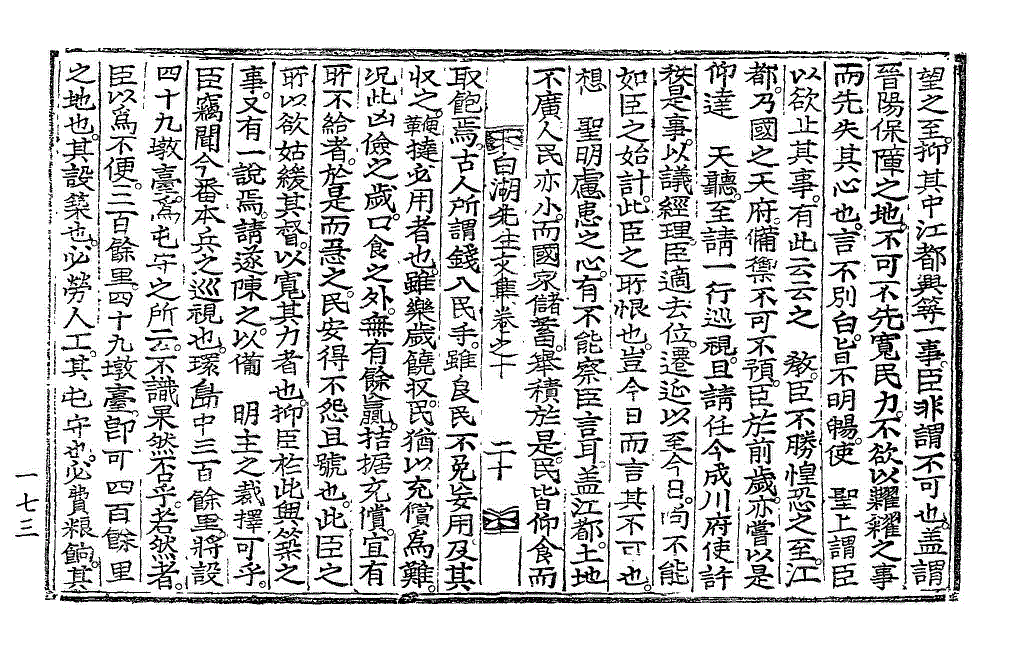 望之至。抑其中江都興等一事。臣非謂不可也。盖謂
晉陽保障之地。不可不先寬民力。不欲以糶糴之事
而先失其心也。言不別白。旨不明暢。使 聖上謂臣
以欲止其事。有此云云之 敎。臣不勝惶恐之至。江
都。乃國之天府。備禦不可不預。臣於前歲。亦嘗以是
仰達 天聽。至請一行巡視。且請任今成川府使許
秩是事。以議經理。臣適去位。遷延以至今日。尙不能
如臣之始計。此臣之所恨也。豈今日而言其不可也。
想 聖明慮患之心。有不能察臣言耳。盖江都。土地
不廣。人民亦小。而國家儲蓄。舉積於是。民皆仰食而
白湖先生文集卷之十 二十
取飽焉。古人所謂錢入民手。雖良民不免妄用。及其
收之。鞭撻必用者也。雖樂歲饒收。民猶以充償爲難。
况此凶儉之歲。口食之外。無有餘贏。拮据充償。宜有
所不給者。於是而急之。民安得不怨且號也。此臣之
所以欲姑緩其督。以寬其力者也。抑臣於此興築之
事。又有一說焉。請遂陳之。以備 明主之裁擇可乎。
臣竊聞今番本兵之巡視也。環島中三百餘里。將設
四十九墩臺。爲屯守之所云。不識果然否乎。若然者。
臣以爲不便。三百餘里。四十九墩臺。卽可四百餘里
之地也。其設築也。必勞人工。其屯守也。必費粮餉。其
一七三